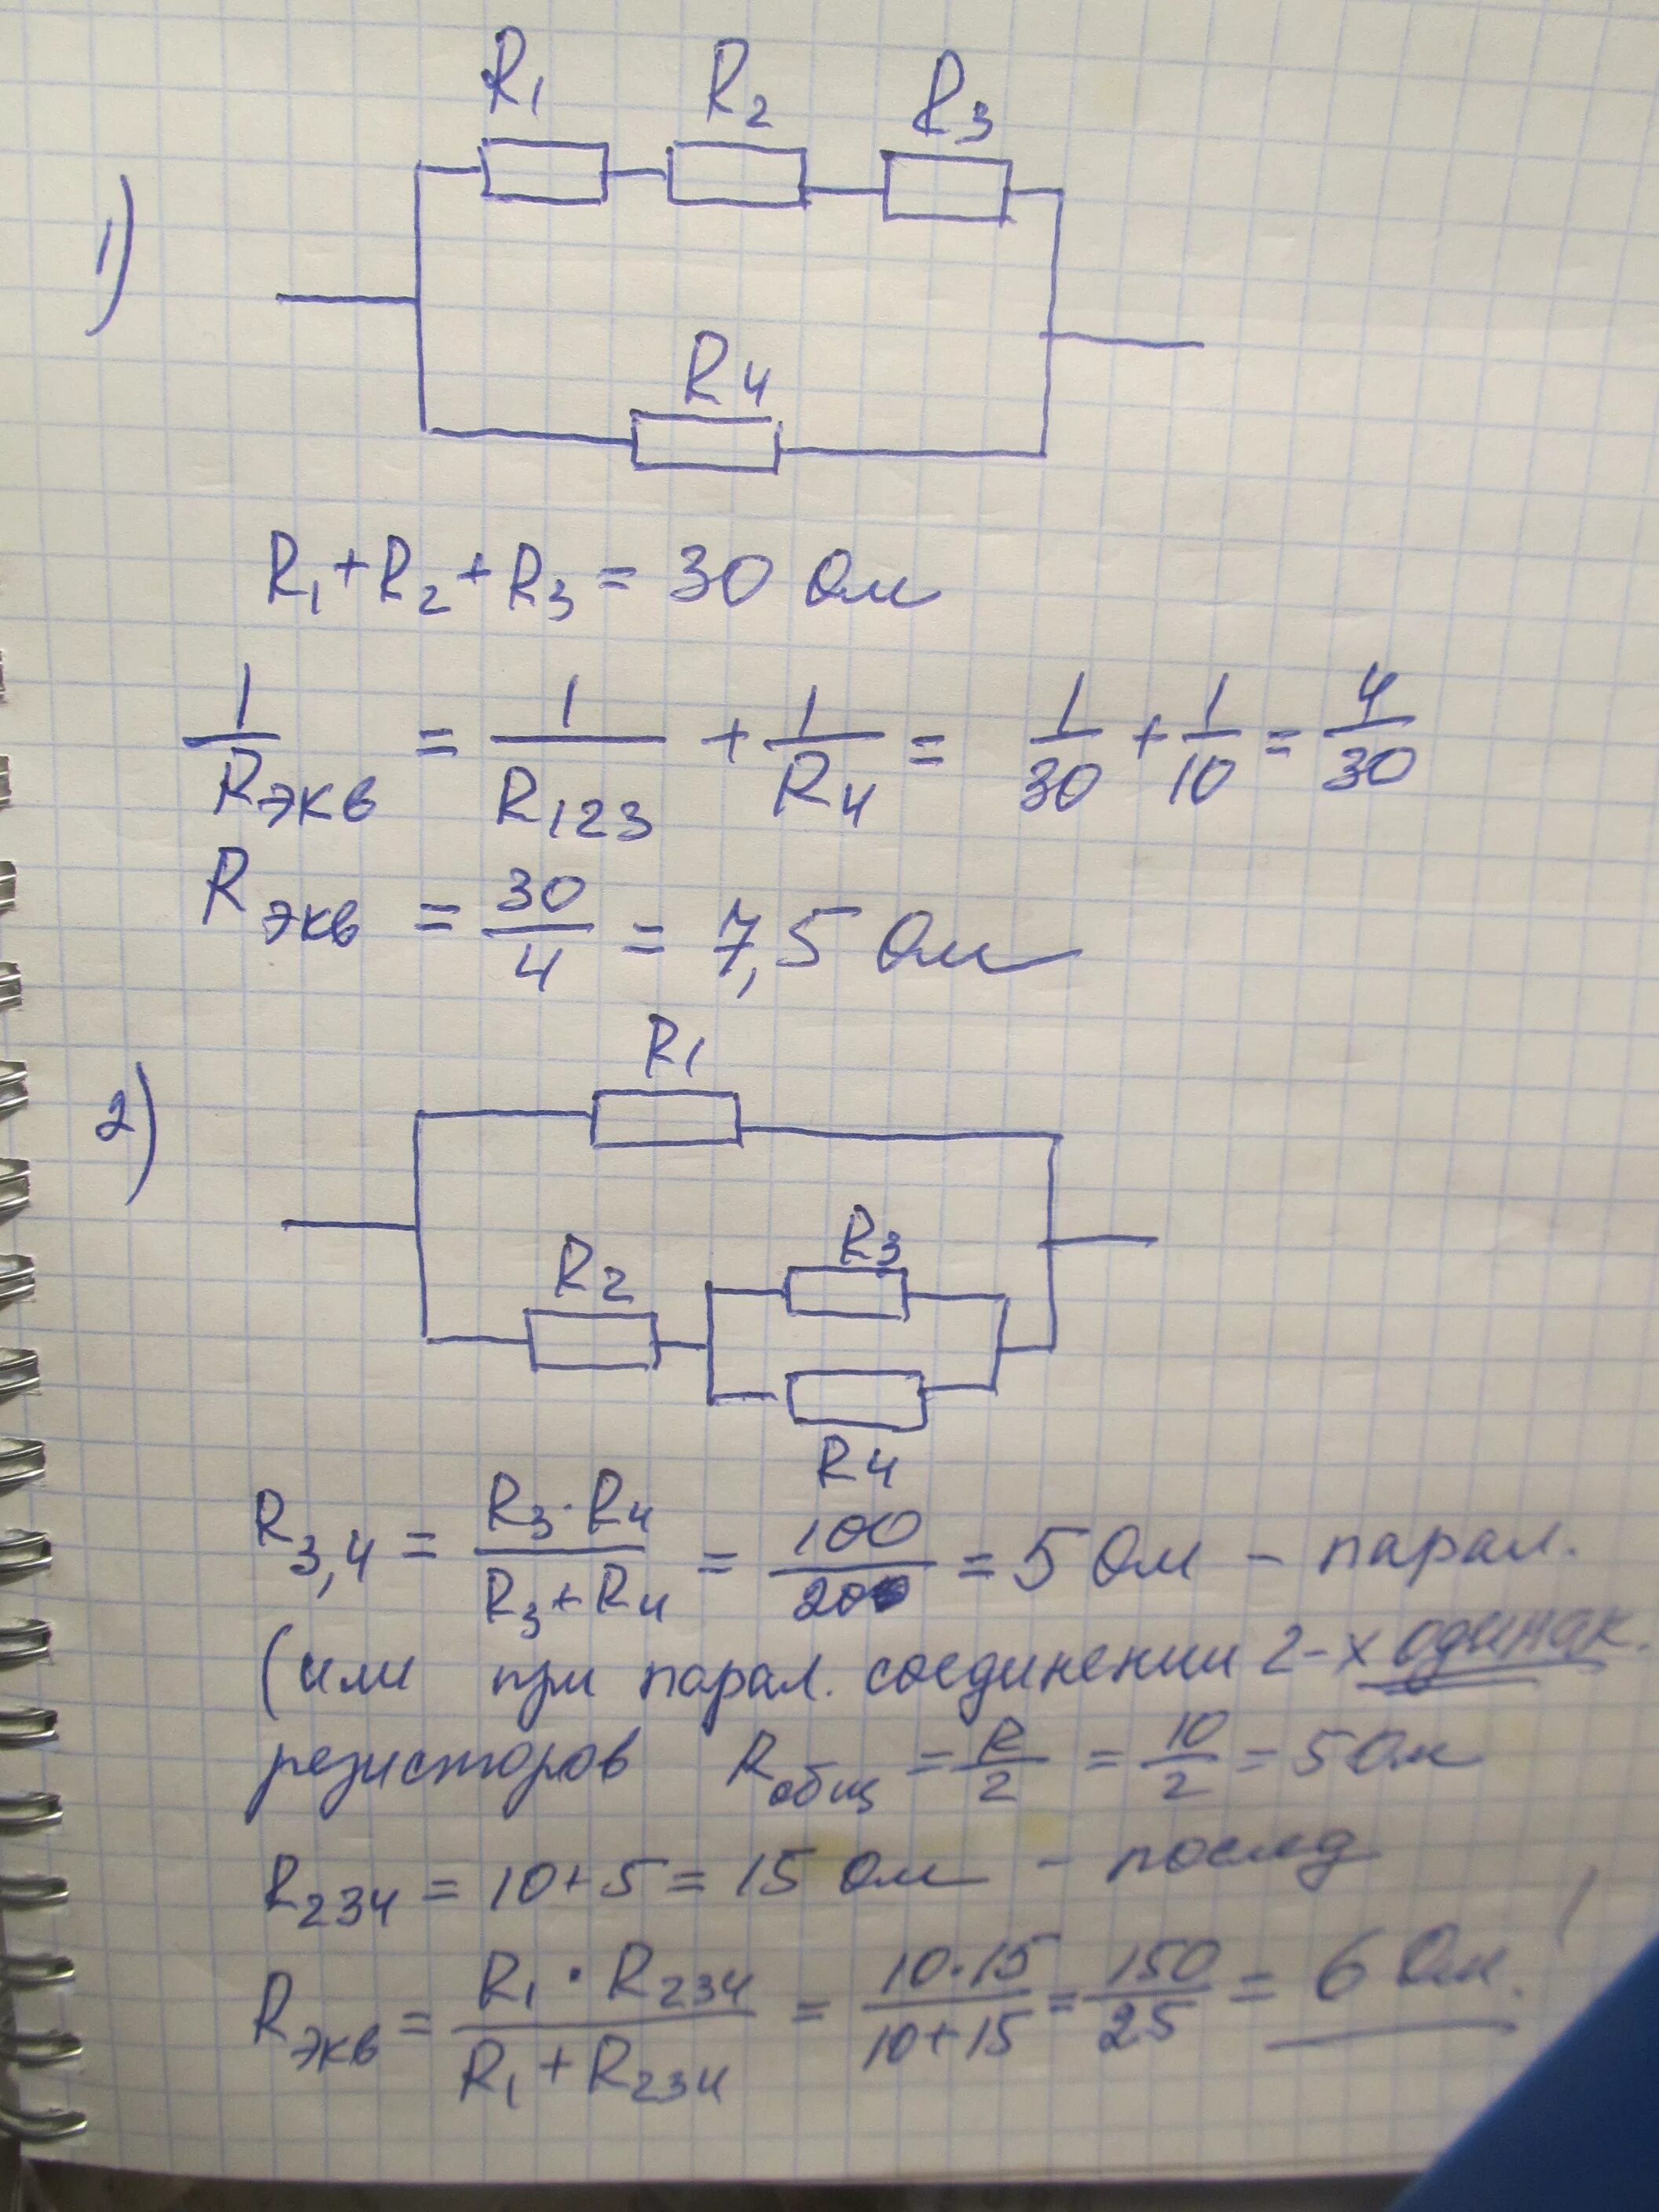 1)
R1 R2 R3
R4
R1 + R2 + R3 = 30 Ом
1/Rэкв = 1/R123 + 1/R4 = 1/30 + 1/10 = 4/30
Rэкв = 30/4 = 7,5 Ом
2)
R1
R3
R2
R4
R3,4 = R3·R4/R3+R4 = 100/20 = 5 Ом – парал.
(или при парал. соединении 2-х одинак.
резисторов Rобщ = R/2 = 10/2 = 5 Ом
R234 = 10+5 = 15 Ом – послед
Rэкв = R1·R234/R1+R234 = 10·15/10+15 = 150/25 = 6 Ом.!